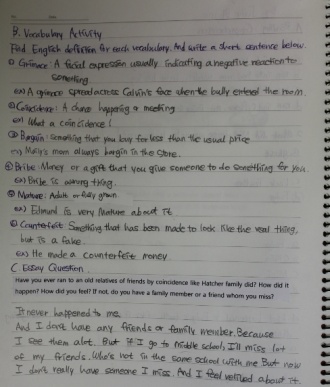 B. Vocabulary Activity
Find English definition for each vocabulary. And write a short sentence below.
① Grimace: A facial expression usually indicating a negative reaction to
something.
ex) A grimace spread across Calvin's face when the bully entered the room.
② Coincidence: A chance happening or meeting
ex) What a coincidence!
③ Bargain: Something that you buy for less than the usual price
ex) Molly's mom always bargain in the store.
④ Bribe: Money or a gift that you give someone to do something for you.
ex) Bribe is a wrong thing.
⑤ Mature: Adult or fully grown.
ex) Edmund is very Mature about it.
⑥ Counterfeit: Something that has been made to look like the real thing,
but is a fake.
ex) He made a counterfeit money.
C. Essay Question.
Have you ever ran to an old relatives of friends by coincidence like Hatcher family did? How did it
happen? How did you feel? If not, do you have a family member or a friend whom you miss?
It never happened to me.
And I don't have any friends or family member. Because
I see them alot. But if I go to Middle school, I'll miss lot
of my friends. Who's not in the same school with me But now
I don't really have someone I miss. And I feel about it.